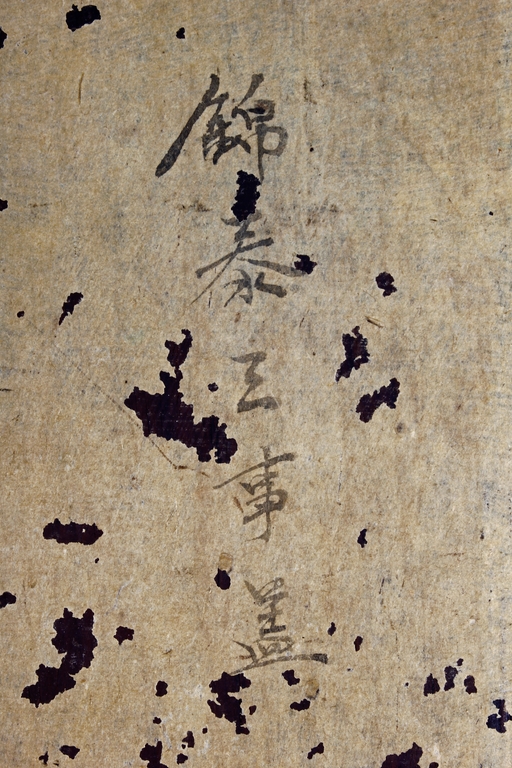 錦泰三事盖